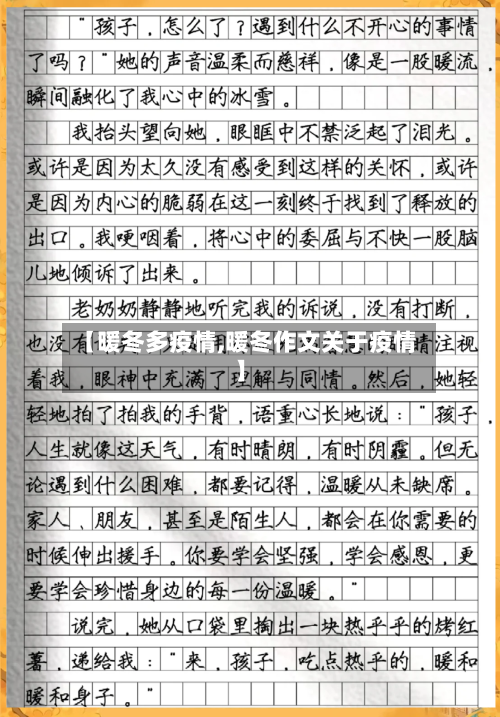 “孩子，怎么了？遇到什么不开心的事情
了吗？”她的声音温柔而慈祥，像是一股暖流，
瞬间融化了我心中的冰雪。
我抬头望向她，眼眶中不禁泛起了泪光。
或许是因为太久没有感受到这样的关怀，或许
是因为内心的脆弱在这一刻终于找到了释放的
出口。我哽咽着，将心中的委屈与不快一股脑
儿地倾诉了出来。
老奶奶静静地听完我的诉说，没有打断，
【暖冬多疫情,暖冬作文关于疫情
】
也没有注视
着我，眼神中充满了理解与同情。然后，她轻
轻地拍了拍我的手背，语重心长地说：“孩子，
人生就像这天气，有时晴朗，有时阴霾。但无
论遇到什么困难，都要记得，温暖从未缺席。
家人、朋友，甚至是陌生人，都会在你需要的
时候伸出援手。你要学会坚强，学会感恩，更
要学会珍惜身边的每一份温暖。”
说完，她从口袋里掏出一块热乎乎的烤红
薯，递给我：“来，孩子，吃点热乎的，暖和
暖和身子。”